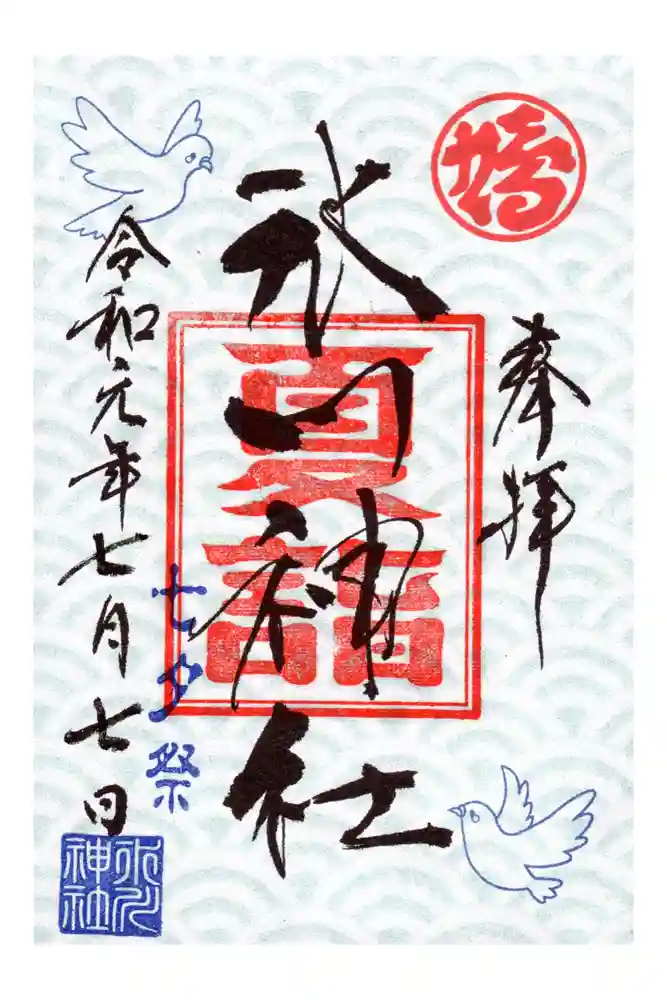 奉拝
氷川神社
夏詣
七夕祭
令和元年七月七日
氷川
神社